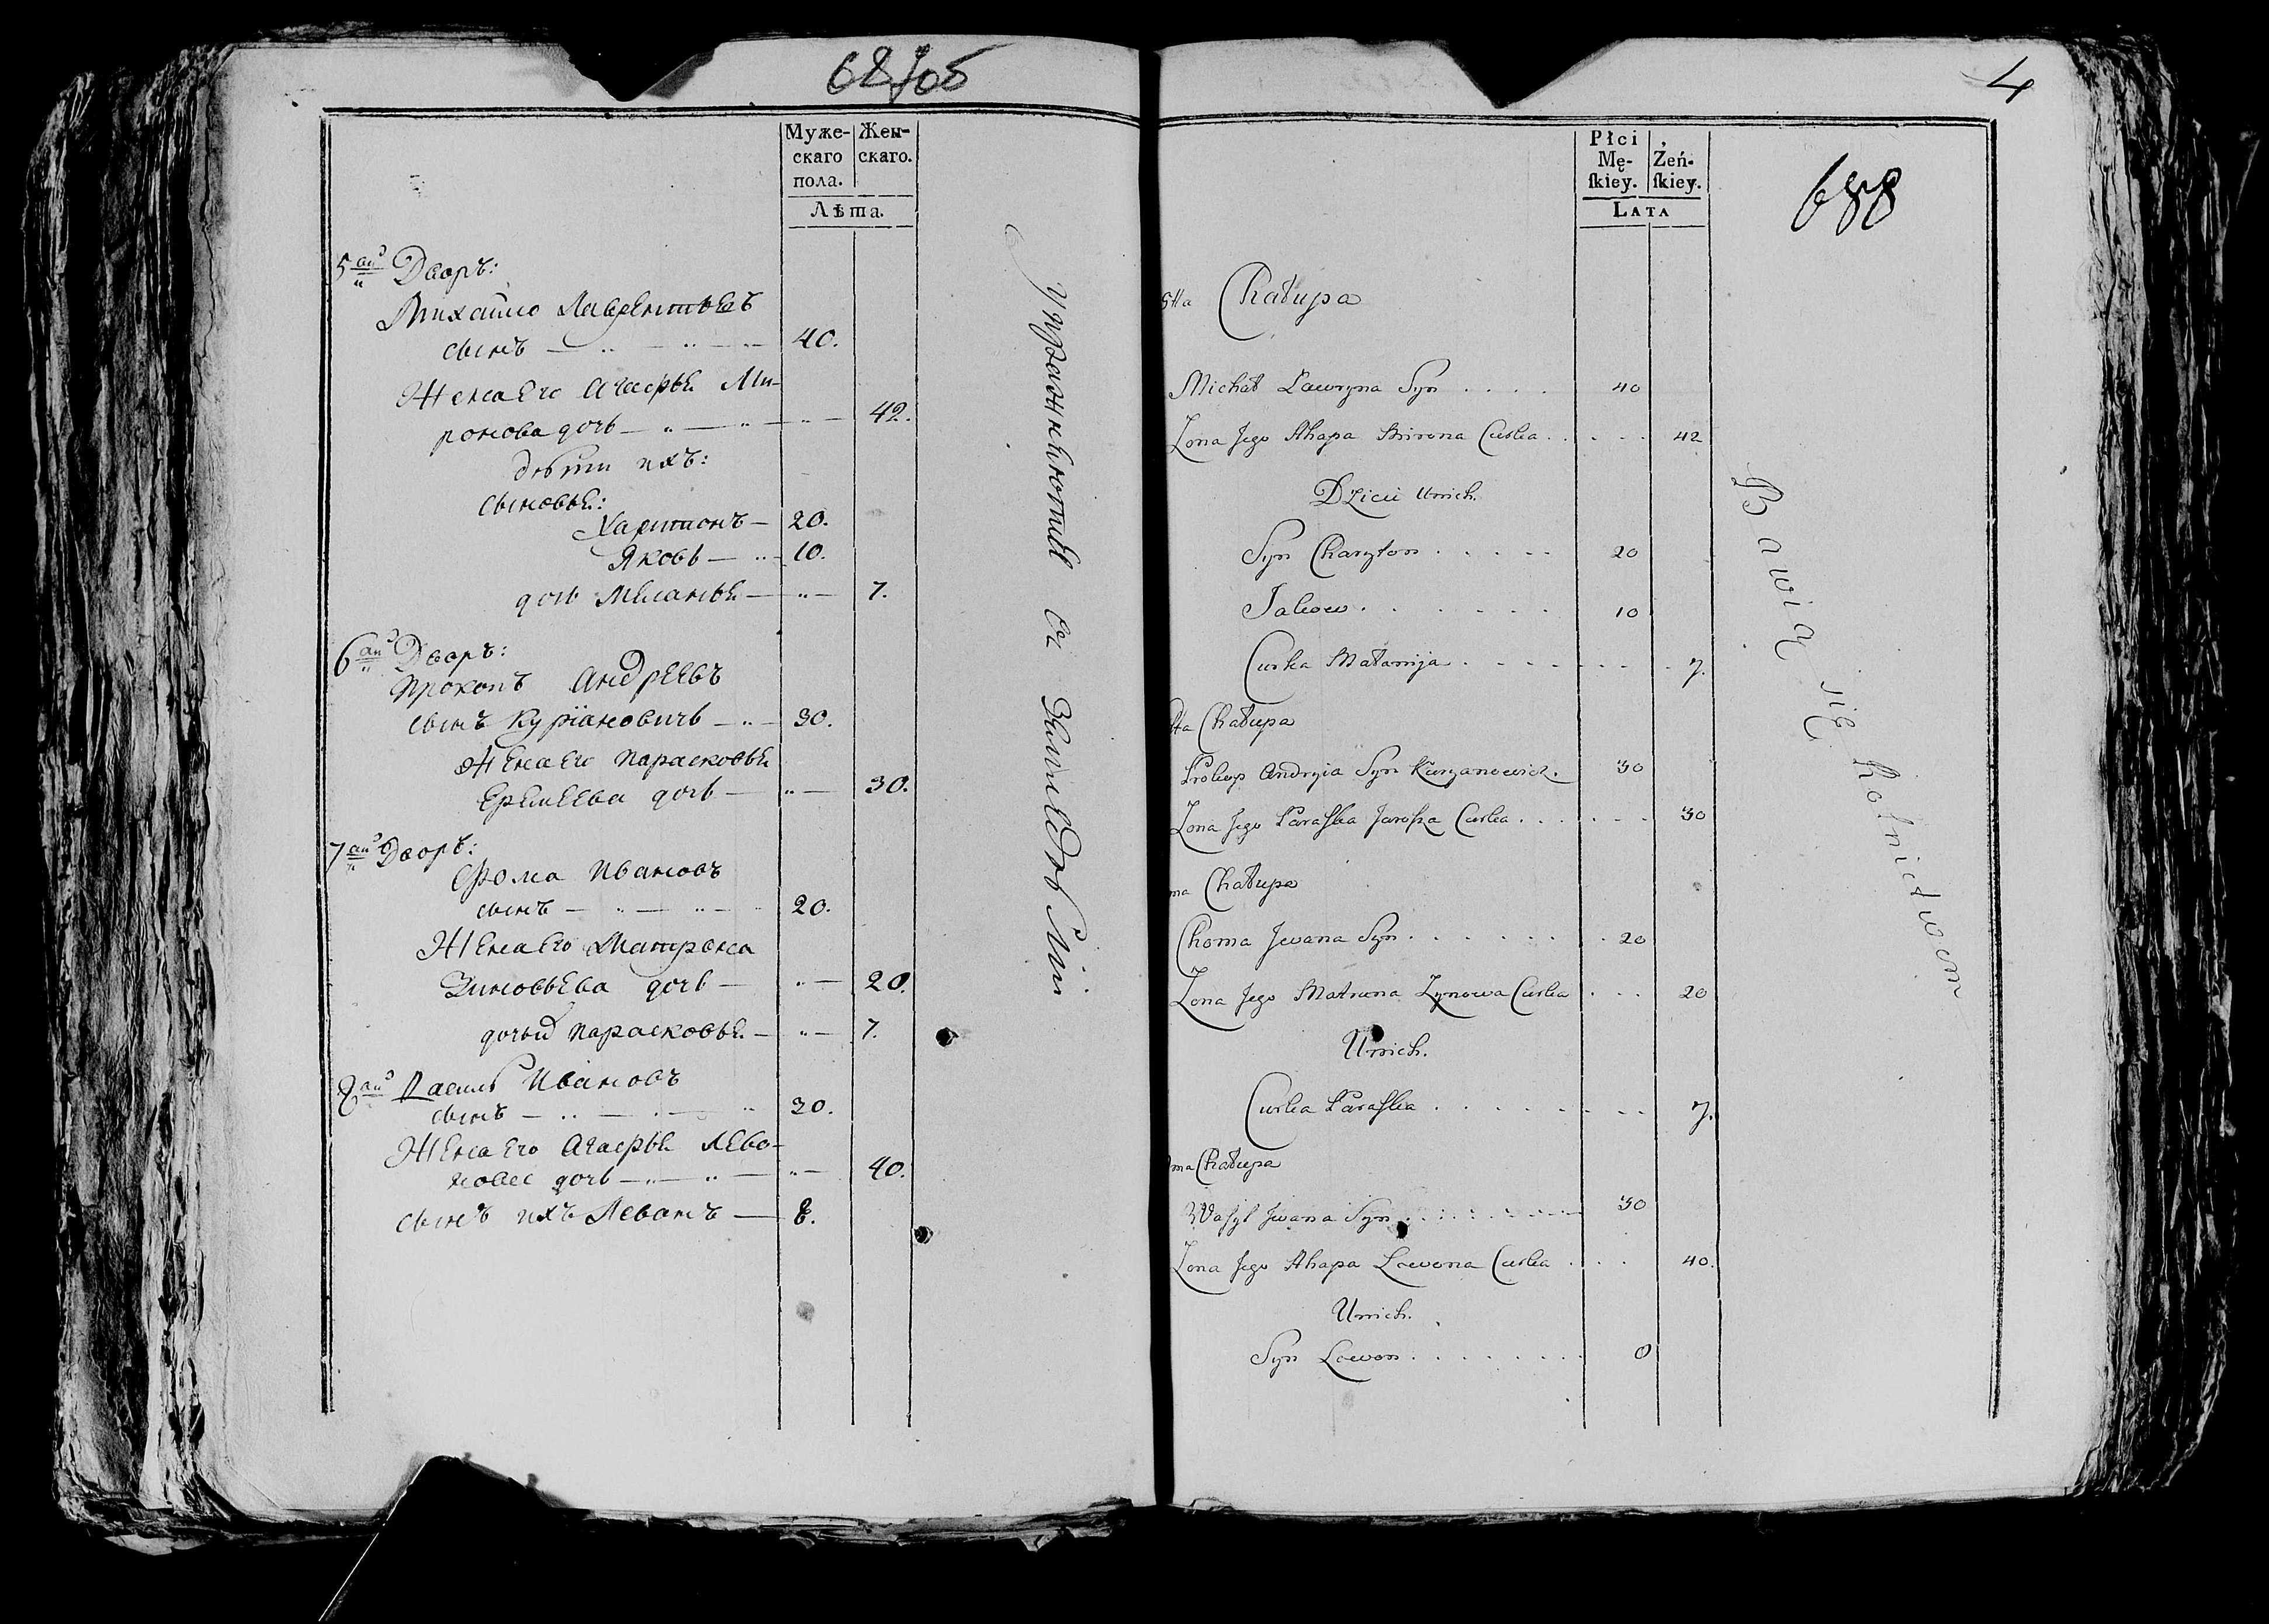 687об
Муже- Жен-
скаго скаго.
пола.
Лѣта.
5ый Дворъ:
Михайло Лаврентьевъ
сынъ 40.
Жена Его Агафья Ми-
ронова дочь 42.
дѣти ихъ:
сыновья:
Харитонъ 20.
Яковъ 10.
дочь Меланья 7.
6ый Дворъ:
Прокопъ Андреевъ
сынъ Куріановичь 30.
Жена Его Парасковья
Еремеева дочь 30.
7ый Дворъ:
Фома Ивановъ
сынъ 20.
Жена Его Матрона
Зиновьева дочь 20.
дочь Парасковья 7.
8ый Василь Ивановъ
сынъ 30.
Жена Его Агафья Лево-
нова дочь 40.
сынъ ихъ Левонъ 8.
Упражняются въ земледѣліи
4
688
Płci
Mę- Żeń-
ſkiey. ſkiey.
LATA
5ta Chałupa
Michał Lawryna Syn 40
Zona Jego Ahapa Mirona Curka 42
Dzieci Unich.
Syn Charyton 20
Jakow 10
Curka Małanija 7.
6ta Chałupa
Prokop Andryia Syn Kuryanowicz 30
Zona Jego Paraſka Jaroſza Curka 30
ma Chałupa
Choma Jwana Syn 20
Zona Jego Matruna Zynowa Curka 20
Unich.
Curka Paraſka 7.
ma Chałupa
Waſyl Jwana Syn 30
Zona Jego Ahapa Lewona Curka 40.
Unich.
Syn Lewon 8
Bawią się rolnictwem